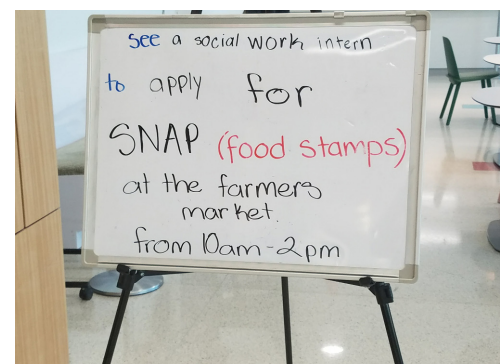 see a social work intern
to apply for
SNAP (food stamps)
at the farmers
market.
from 10am-2pm